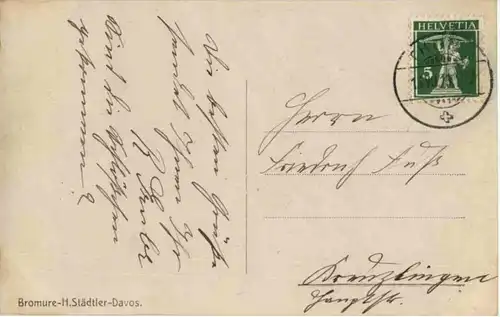 Die besten Grüße
sendet Ihnen Ihr
Sind die
gekommen?
HELVETIA
5
Herrn
Friedrich Fuß
Kreuzlingen
Hauptstr.
Bromure-H.Städtler-Davos.